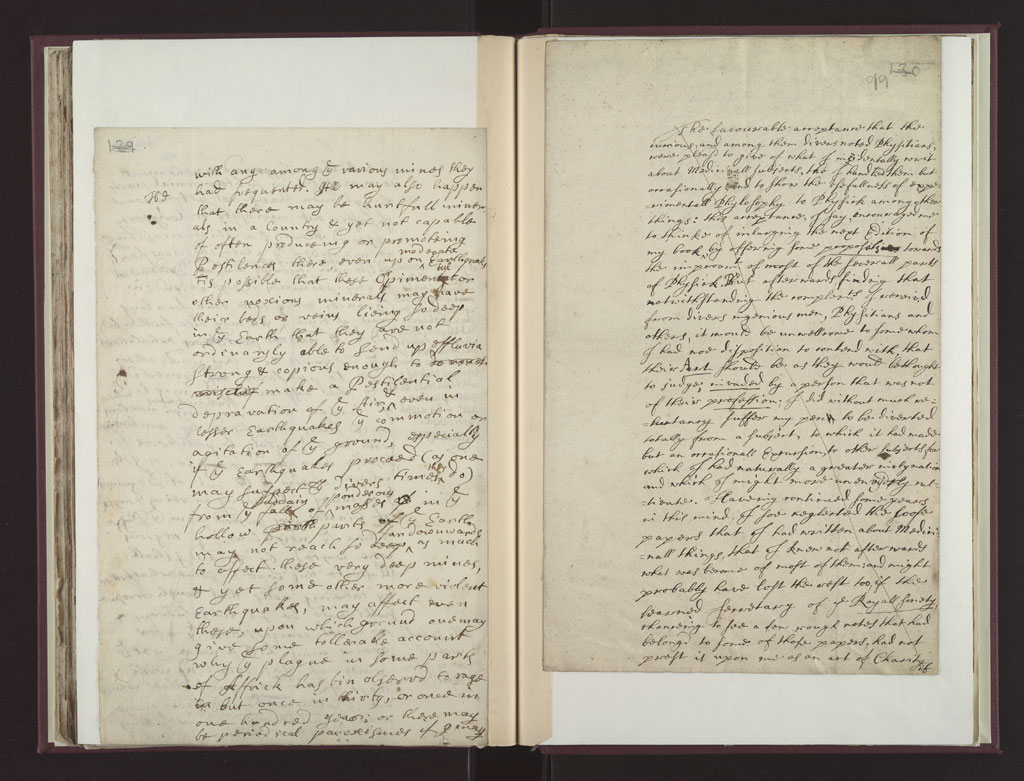 129
with any among ye various mines they
had frequented. It may also happen
that there may be hurtfull miner
als in a Country & yet not capable
of often producing or promoteing
Pestilences there, even upon moderate Earthquaks
tis possible that these Opiment or
other noxious minerals may have
their beds or veins lieing so deep
in ye Earth that they are not
ordinaryly able to send up effluvia
strong & copious enough to
make a Pestilential
depravation of ye Air, & even in
lesser Earthquakes ye commotion or
agitation of ye ground, especially
if ye Earthquakes proceed (as one
may suspect yt divers times they do)
from ye suddain fall of ponderous masses in ye
hollow parts of ye Earth
may not reach so far downwards as much
to affect these very deep mines,
& yet some other more violent
Earthquakes, may affect even
these, upon which ground one may
give some tollerable account
why ye plague in some parts
of Affrick has bin observd to rage
but once in thirty, or once in
one hundred years: or there may
be periodical paroxismes if I may
130
99
The favourable acceptance that the
curious, and among them divers noted Physitians,
were pleas'd to give of what I incidentally writ
about Medicinall subjects, tho I handled them but
occasionally and to show the usefullness of expe
rimentall Phylosophy to Physick among other
things: this acceptance, I say, encouraged me
to thinke of inlarging the next Edition, of
my book, by offering some proposals towards
the improvem: of most of the severall parts
of Physick. But afterwards finding that
notwithstanding the complemts I received
from divers ingenious men, Physitians and
others, it would be unwellcome to some whom
I had noe disposition to contend with, that
their Art should be as they would bethought
to judge, invaded by a person that was not
of their profession. I did without much re-
luctancy suffer my pen to be diverted
totally from a subject, to which it had made
but an occasionall Excursion, to other subjects for
which I had naturally a greater inclynation
and which I might more unenvyedly cul-
tivate. Haveing continued some years
in this mind, I soe neglected the loose
papers that I had written about Medici-
nall things, that I knew not afterwards
what was become of most of them: and might
probably have lost the rest too, if the
learned secretary of ye Royall Society,
chanceing to see a few rough notes that had
belong'd to some of those papers, had not
prest it upon me as an act of Charity